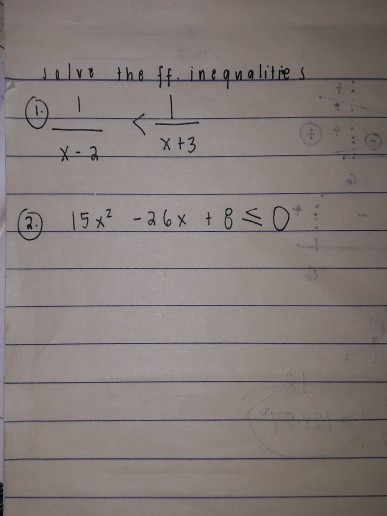 solve the ff. inequalities
1. 1/(x - 2) < 1/(x + 3)
2. 15x² - 26x + 8 ≤ 0